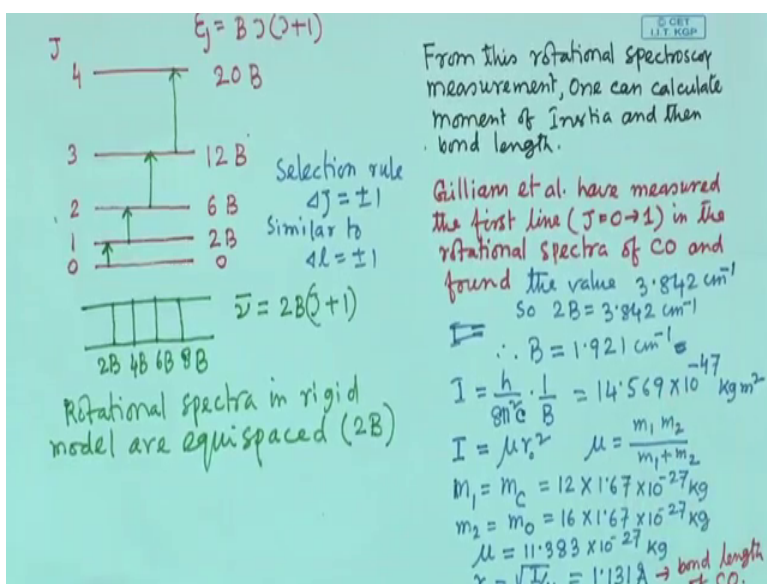 © CET
I.I.T. KGP
εJ = B J(J+1)
J
4 20B
3 12B
2 6B
1 2B
0 0
Selection rule
ΔJ = ±1
Similar to
Δl = ±1
ν̄ = 2B(J+1)
2B 4B 6B 8B
Rotational spectra in rigid
model are equispaced (2B)
From this rotational spectroscopy
measurement, One can calculate
moment of Inertia and then
bond length.
Gilliam et al. have measured
the first line (J=0→1) in the
rotational spectra of CO and
found the value 3.842 cm⁻¹
So 2B = 3.842 cm⁻¹
∴ B = 1.921 cm⁻¹
I = h/8π²c · 1/B = 14.569 × 10⁻⁴⁷ kg m²
I = μr₀² μ = m₁ m₂/m₁+m₂
m₁ = m_C = 12 × 1.67 × 10⁻²⁷ kg
m₂ = m_O = 16 × 1.67 × 10⁻²⁷ kg
μ = 11.383 × 10⁻²⁷ kg
= 1.131 Å → bond length
of CO.